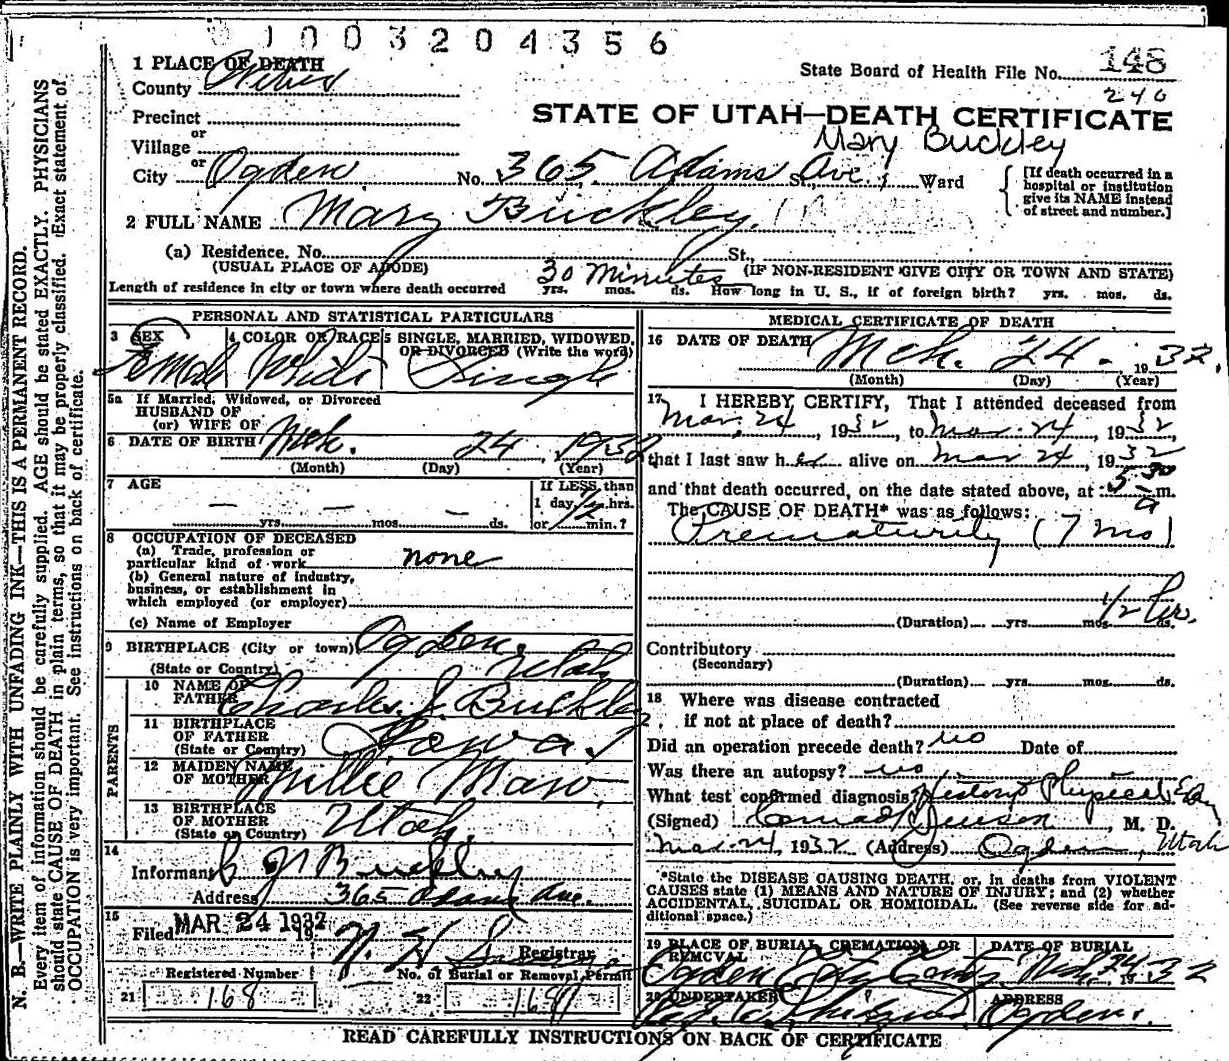 1003204356
1 PLACE OF DEATH
State Board of Health File No. 148
County Weber
240
Precinct
STATE OF UTAH—DEATH CERTIFICATE
or
Village
Mary Buckley
or
City Ogden No. 365 Adams St., Ave. Ward
[If death occurred in a hospital or institution give its NAME instead of street and number.]
2 FULL NAME Mary Buckley.
(a) Residence. No. St.,
(USUAL PLACE OF ABODE) (IF NON-RESIDENT GIVE CITY OR TOWN AND STATE)
Length of residence in city or town where death occurred 30 Minutes yrs. mos. ds. How long in U. S., if of foreign birth? yrs. mos. ds.
PERSONAL AND STATISTICAL PARTICULARS
3 SEX Female
4 COLOR OR RACE White
5 SINGLE, MARRIED, WIDOWED, OR DIVORCED (Write the word) Single
5a If Married, Widowed, or Divorced
HUSBAND OF
(or) WIFE OF
6 DATE OF BIRTH Mch. 24, 1932
(Month) (Day) (Year)
7 AGE — — —
yrs. mos. ds.
If LESS than
1 day, 1/2 hrs.
or min.?
8 OCCUPATION OF DECEASED
(a) Trade, profession or
particular kind of work none
(b) General nature of industry,
business, or establishment in
which employed (or employer)
(c) Name of Employer
9 BIRTHPLACE (City or town) Ogden,
(State or Country) Utah
PARENTS
10 NAME OF FATHER Charles J. Buckley
11 BIRTHPLACE OF FATHER (State or Country) Iowa.
12 MAIDEN NAME OF MOTHER Millie Maw.
13 BIRTHPLACE OF MOTHER (State or Country) Utah.
14
Informant C J Buckley
Address 365 Adams Ave.
15
Filed MAR 24 1932 19
N. H.
Registrar
Registered Number
No. of Burial or Removal Permit
21 168
22 168
MEDICAL CERTIFICATE OF DEATH
16 DATE OF DEATH Mch. 24 - 1932.
(Month) (Day) (Year)
17 I HEREBY CERTIFY, That I attended deceased from
Mar. 24, 1932, to Mar. 24, 1932,
that I last saw her alive on Mar 24, 1932
and that death occurred, on the date stated above, at 5-30 a m.
The CAUSE OF DEATH* was as follows:
Prematurity (7 mo)
1/2 hrs.
(Duration) yrs. mos. ds.
Contributory
(Secondary)
(Duration) yrs. mos. ds.
18 Where was disease contracted
if not at place of death?
Did an operation precede death? no Date of
Was there an autopsy? no
What test confirmed diagnosis? History Physical Ex
(Signed) Conrad Jenson, M. D.
Mar. 24, 1932 (Address) Ogden, Utah
*State the DISEASE CAUSING DEATH, or, in deaths from VIOLENT
CAUSES state (1) MEANS AND NATURE OF INJURY; and (2) whether
ACCIDENTAL, SUICIDAL OR HOMICIDAL. (See reverse side for ad-
ditional space.)
19 PLACE OF BURIAL, CREMATION OR REMOVAL
Ogden City
DATE OF BURIAL
Mch. 24 1932
20 UNDERTAKER
ADDRESS
Ogden.
READ CAREFULLY INSTRUCTIONS ON BACK OF CERTIFICATE
N. B.—WRITE PLAINLY WITH UNFADING INK—THIS IS A PERMANENT RECORD.
Every item of information should be carefully supplied. AGE should be stated EXACTLY. PHYSICIANS
should state CAUSE OF DEATH in plain terms, so that it may be properly classified. Exact statement of
OCCUPATION is very important. See instructions on back of certificate.